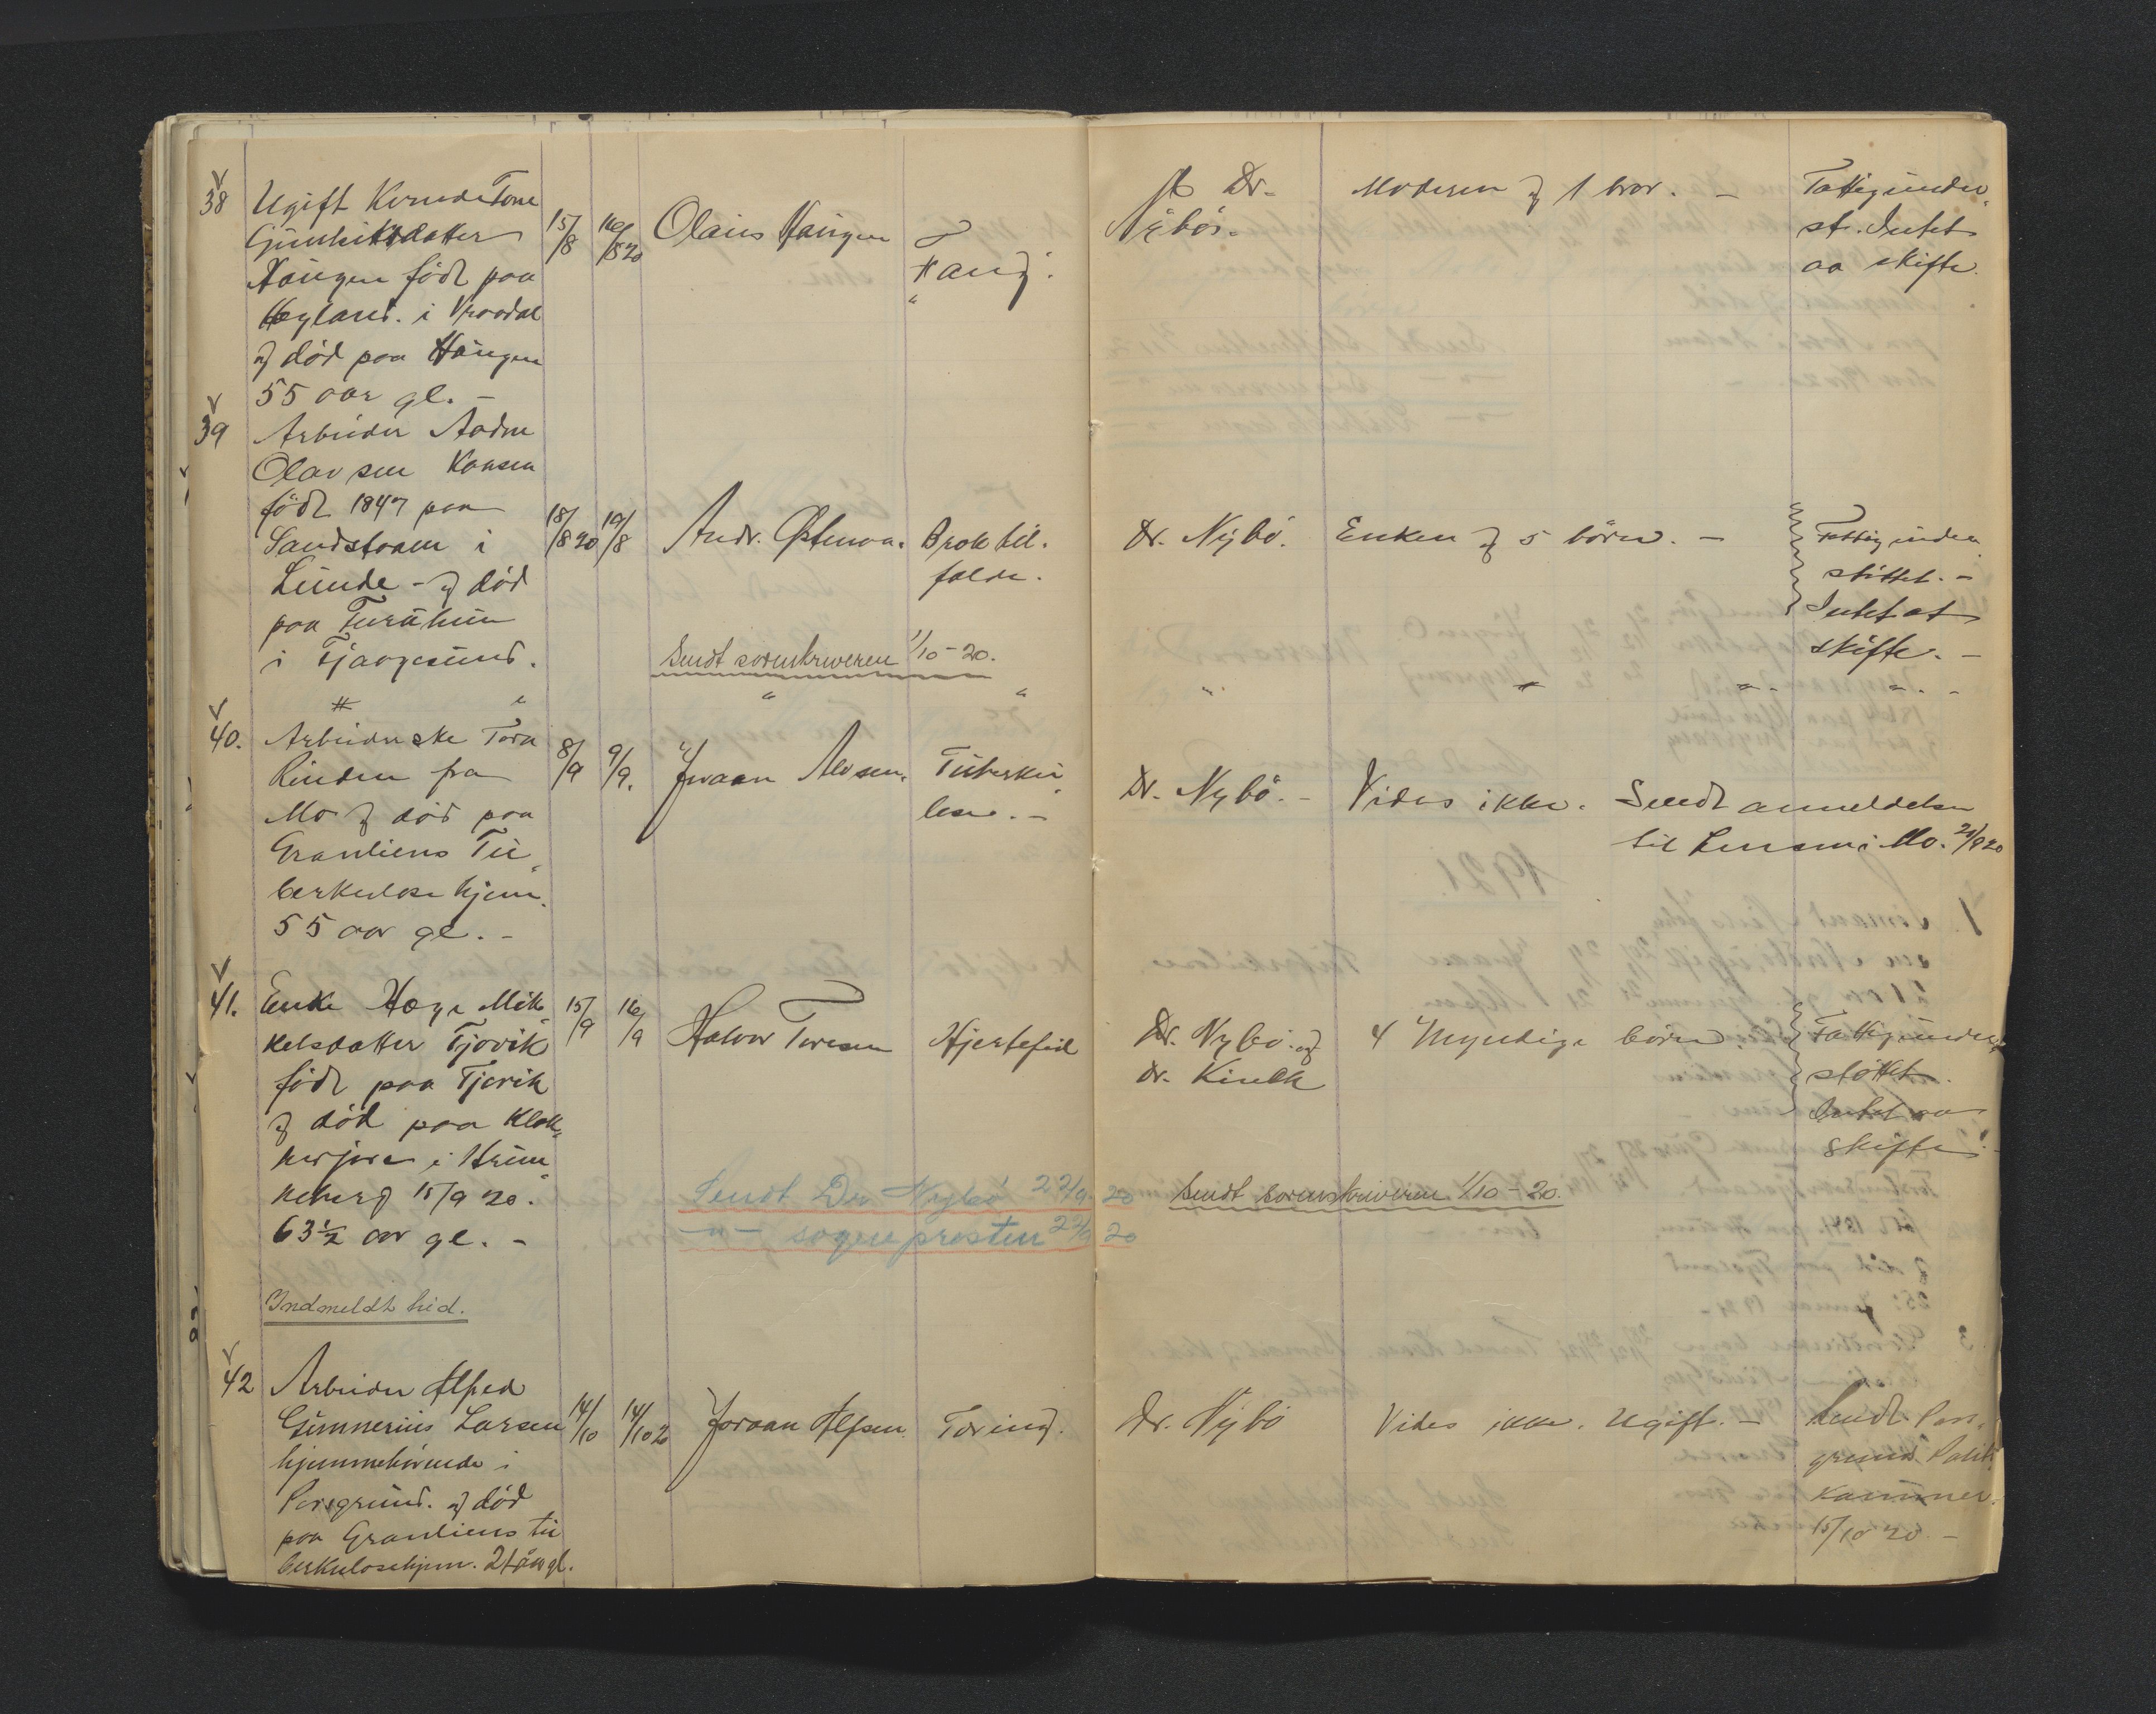 38 Ugift Kvinde Tone
Gunleiksdatter
Haugen född paa
Høyland. i Vraadal
og död paa Haugen
55 aar gl. -
15/8 16/8 20 Olaus Haugen
Tæring.
Dr.
Nybö.
Moderen og 1 bror. -
Fattigunder
st. Intet
aa skifte.
39 Arbeider Aadne
Olavsen Kaasen
född 1847 paa
Sandstaaen i
Lunde - og död
paa
i
18/8 20 19/8 Andr. Østenaa. Brok til.
falde.
Sendt sorenskriveren 1/10-20.
Dr. Nybö. Enken og 5 börn. -
Fattigunder
stöttet. -
Intet at
skifte. -
40. Arbeiderske Tora
Rinden fra
Mo og död paa
Granliens Tu
berkulose hjem.
55 aar gl. -
8/9 9/9. Joraan Alvsen. Tuberku
lose. -
Dr. Nybö. - Vides ikke. Sendt anmeldelsen
til Lensm i Mo. 20/9 20
41. Enke Hæge Mik
kelsdatter Tjovik
född paa Tjovik
og död paa Klok
kerjore i Hrun
keberg 15/9 20.
63 ½ aar gl. -
15/9 16/9 Halvor Toresen Hjertefeil
Dr. Nybö. og
Dr. Kinck
4 Myndige börn.
Fattigunder
støttet.
Intet aa
skifte.
Sendt Dr Nybö 22/9 20
-"- sogneprosten 22/9 20
Sendt sorenskriveren 1/10-20.
Indmeldt hid.
42 Arbeider Alfred
Gunnerius Larsen
hjemmehörende i
Porsgrund. og död
paa Granliens tu
berkulosehjem. 21 aar gl.
14/10 14/10 20 Joraan Alfsen. Tæring.
Dr. Nybö Vides ikke. Ugift. -
Sendt Pors
grund Politi
kammer.
15/10 20. -